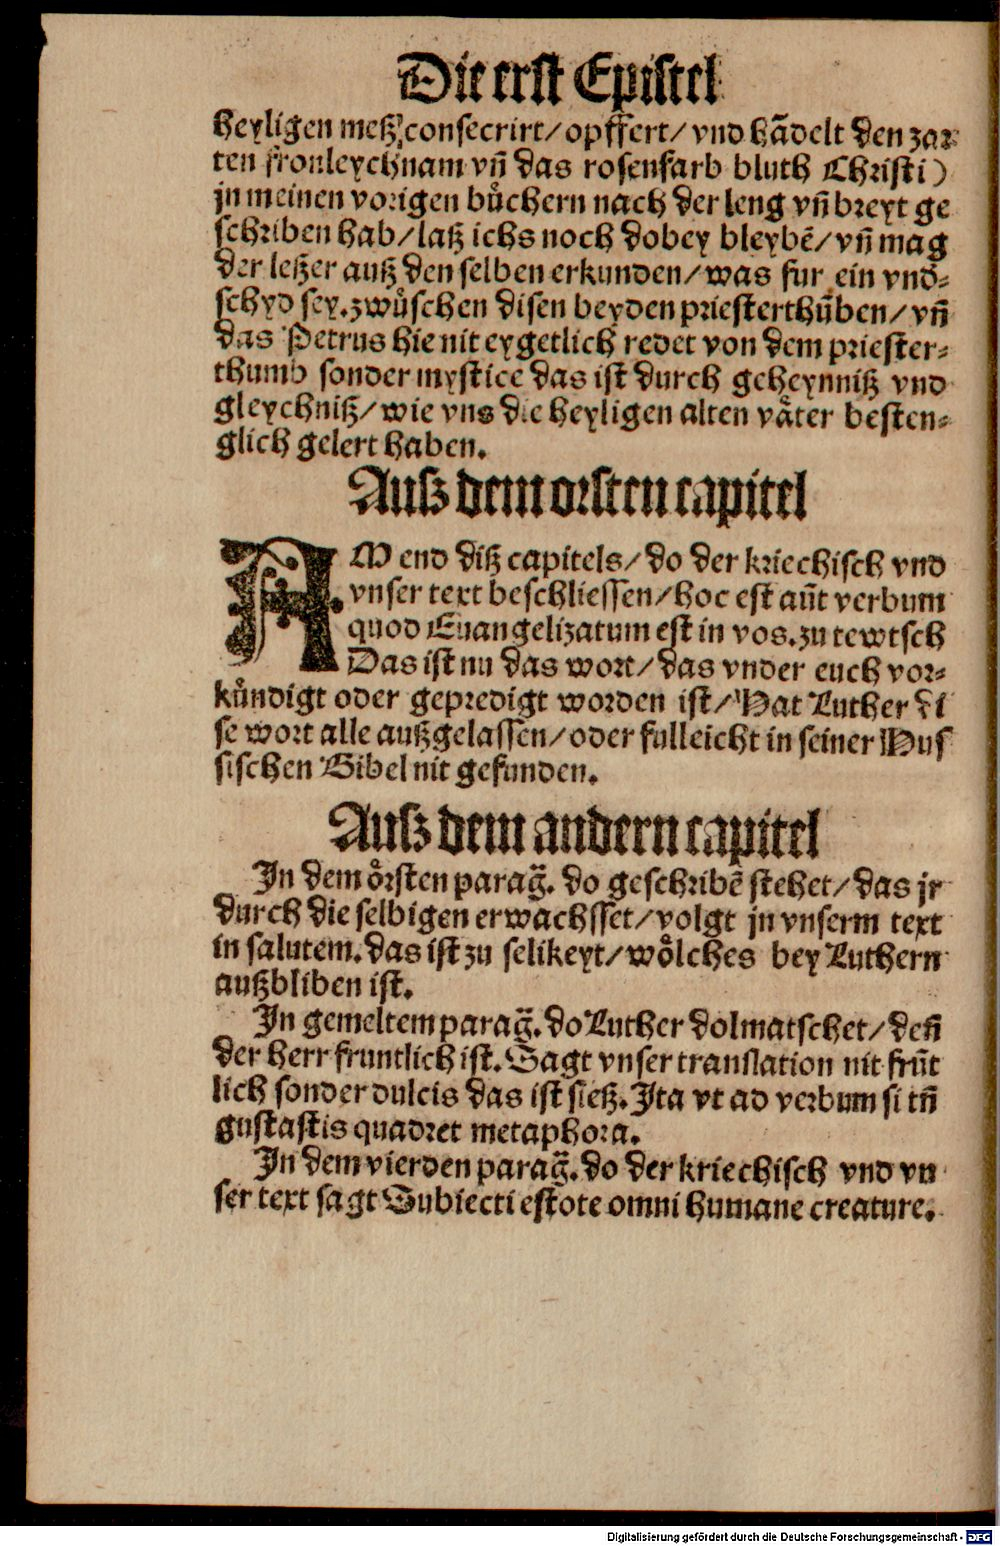 Die erst Epistel
heyligen meß/consecrirt/opffert/vnd hãdelt den zar-
ten fronleychnam vñ das rosenfarb bluth Christi)
jn meinen vorigen bůchern nach der leng vñ breyt ge
schriben hab/laß ichs noch dobey bleybẽ/vñ mag
der leßer auß den selben erkunden/was fur ein vnd-
schyd sey.zwůschen disen beyden priesterthũben/vñ
das Petrus hie nit eygetlich redet von dem priester-
thumb sonder mystice das ist durch geheynniß vnd
gleychniß/wie vns die heyligen alten våter besten-
glich gelert haben.
Auß dem orsten capitel
AM end diß capitels/do der kriechisch vnd
vnser text beschliessen/hoc est aũt verbum
quod Euangelizatum est in vos.zu tewtsch
Das ist nu das wort/das vnder euch vor-
kůndigt oder gepredigt worden ist/Hat Luther di
se wort alle außgelassen/oder fulleicht in seiner Hus
sischen Bibel nit gefunden.
Auß dem andern capitel
In dem örsten parag̃. do geschribẽ stehet/das jr
durch die selbigen erwachsset/volgt jn vnserm text
in salutem.das ist zu selikeyt/wölches bey Luthern
außbliben ist.
In gemeltem parag̃.do Luther dolmatschet/deñ
der herr fruntlich ist.Sagt vnser translation nit frũt
lich sonder dulcis das ist sieß.Ita vt ad verbum si tñ
gustastis quadret metaphora.
In dem vierden parag̃.do der kriechisch vnd vn
ser text sagt Subiecti estote omni humane creature.
Digitalisierung gefördert durch die Deutsche Forschungsgemeinschaft - DFG